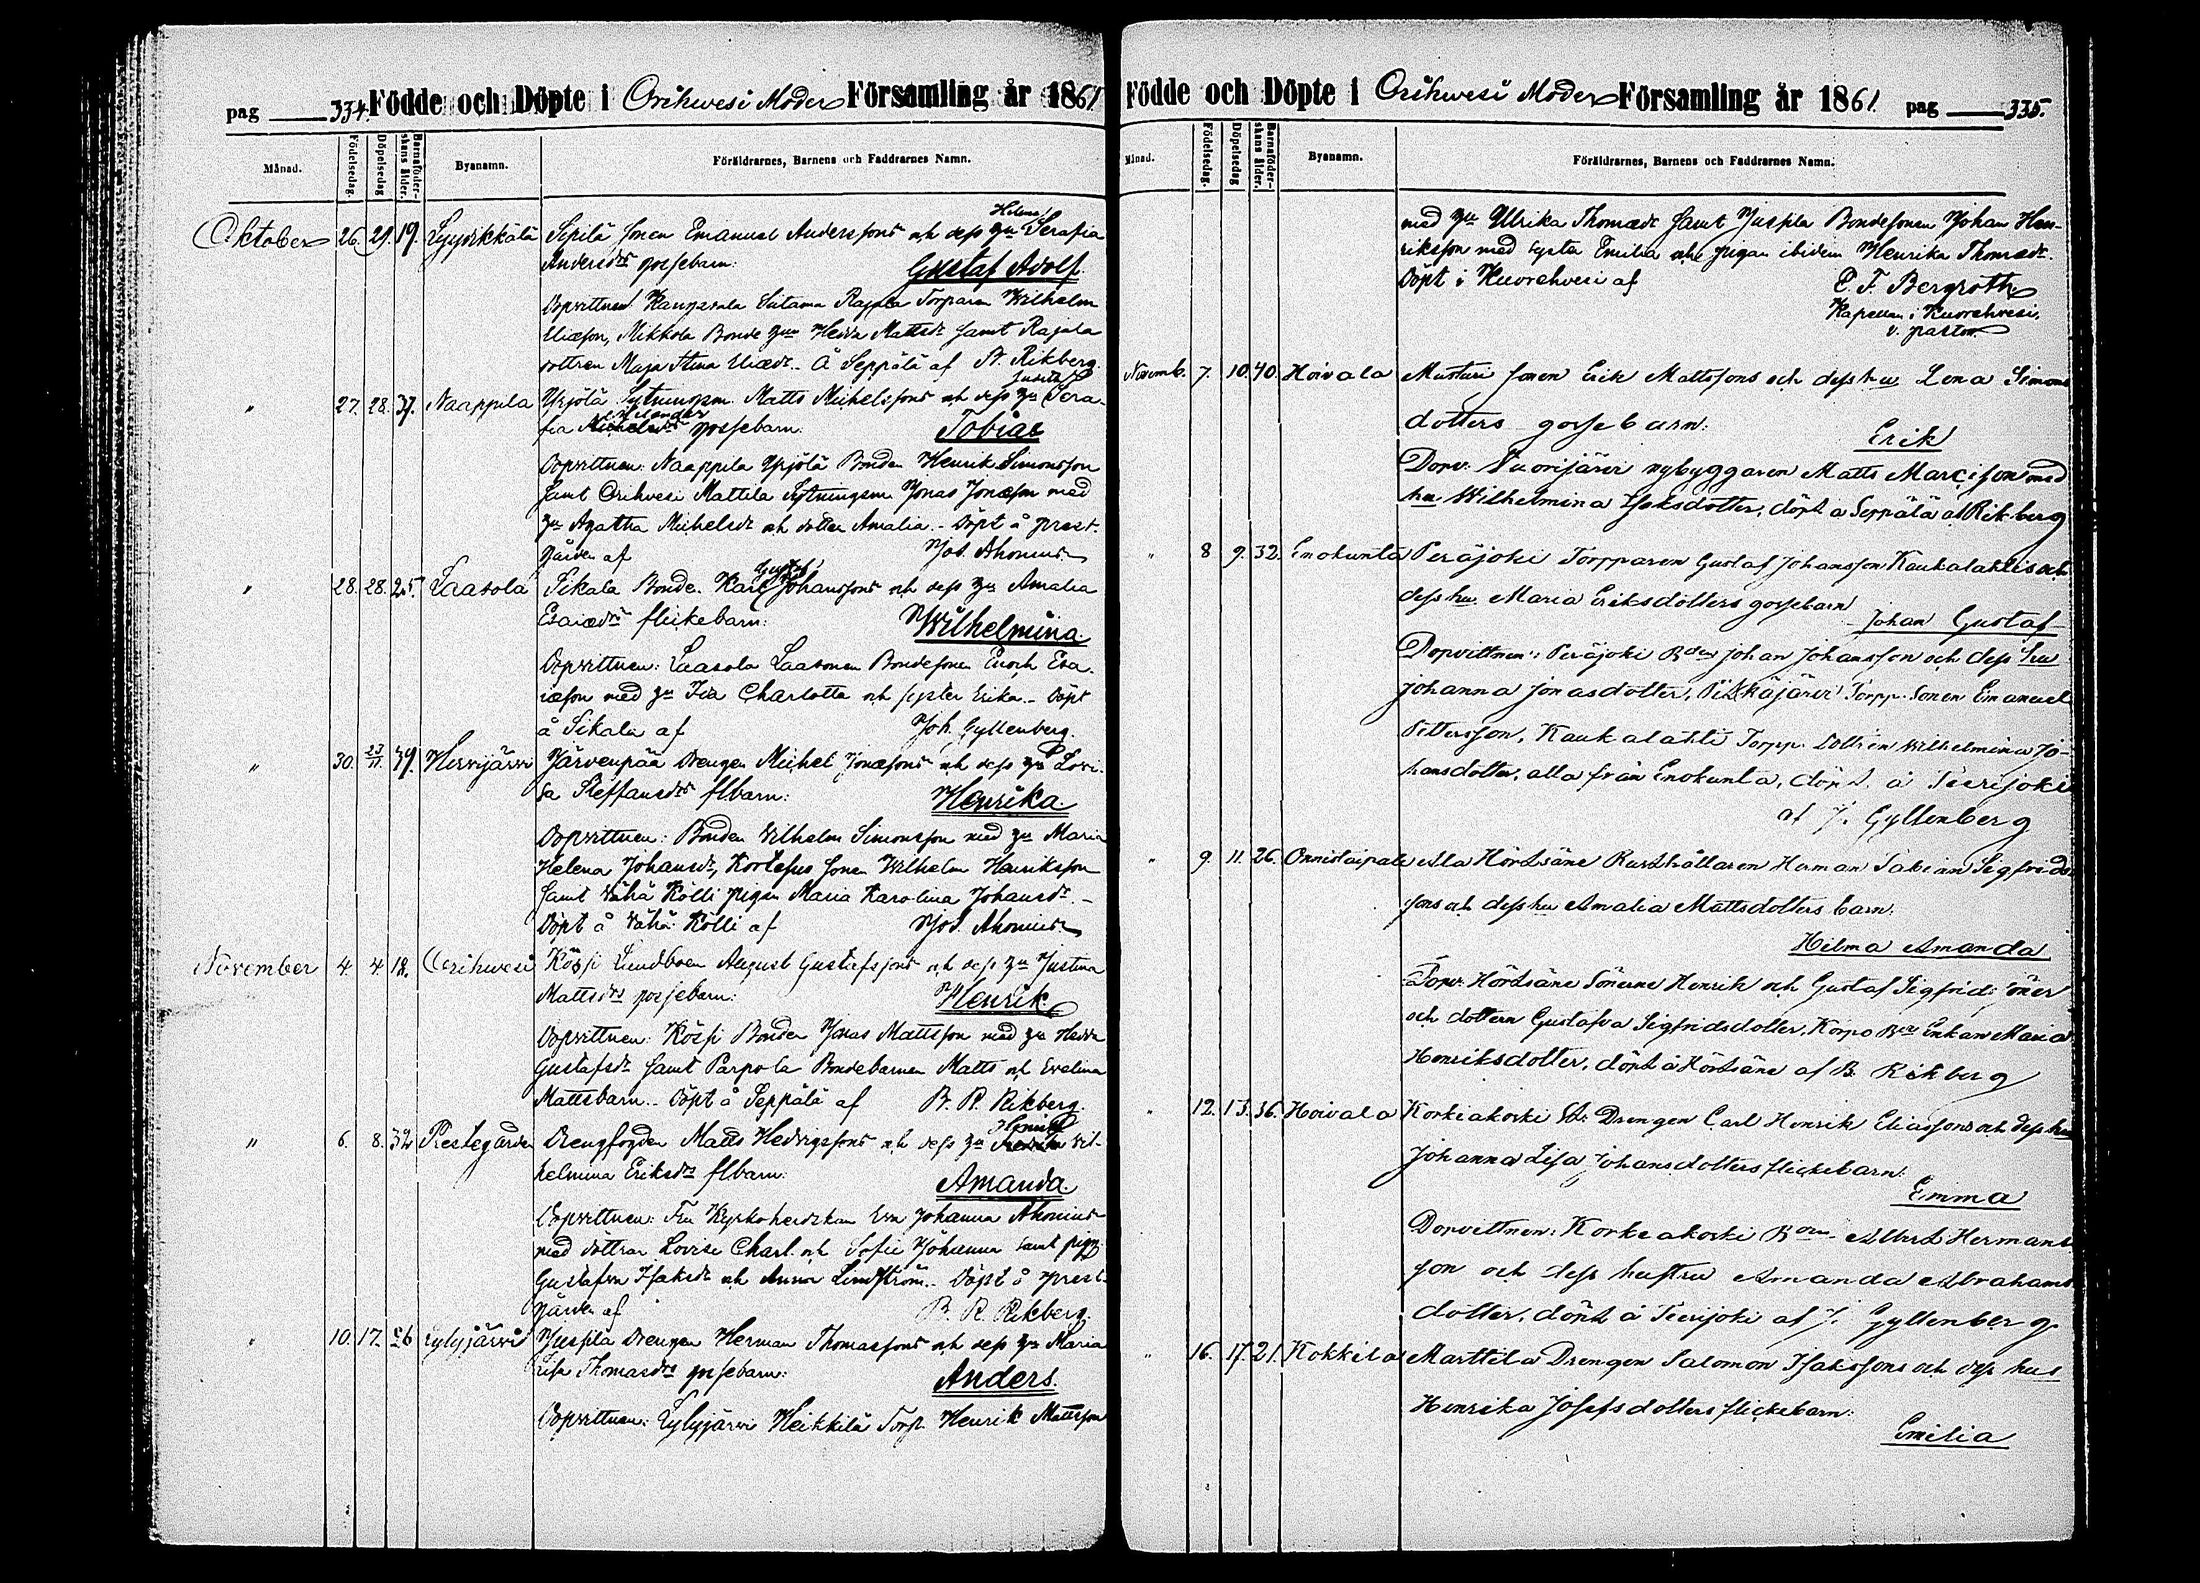 pag 334. Födde och Döpte i Orihwesi Moder Församling år 1861
Månad. Födelsedag. Döpelsedag Barnaföderskans ålder. Byanamn. Föräldrarnes, Barnens och Faddrarnes Namn.
Oktober 26. 29. 19. Lyydikkälä Sipilä sonen Emanuel Anderssons och dess hu Helena Serafia
Andersdrs gossebarn: Gustaf Adolf.
Dopvittnen: Kangasala Suitama Rajala Torparen Wilhelm
Eliæson, Mikkola Bonde hun Hedda Mattsdr samt Rajala
dottren Maja Stina Eliædr. Å Seppälä af B. Rikberg.
" 27. 28. 37. Naappila Yrjölä Sytningsm. Matts Michelssons och dess hu Justina Sera-
fia gossebarn: Tobias
Dopvittnen: Naappila Yrjölä Bonden Henrik Simonsson
samt Orihvesi Mattila Sytningsm. Jonas Jonæson med
hu Agatha Michelsdr och dotter Amalia. Döpt å prest-
gården af Jos. Ahonius
" 28. 28. 25. Laasola Sikala Bonde Karl Gustaf Johanssons och dess hu Amalia
Esaiædrs flickebarn: Wilhelmina.
Dopvittnen: Laasola Laasonen Bondesonen Enoch Esa-
iæson med hu Ida Charlotta och syster Erika. Döpt
å Sikala af Joh. Gyllenberg.
" 30. 23/11. 39. Hirvijärvi Järvenpää Drengen Michel Jonæsons och dess hu Lovi-
sa Steffansdrs flbarn: Henrika.
Dopvittnen: Bonden Wilhelm Simonsson med hu Maria
Helena Johansdr, Kortesus sonen Wilhelm Henriksson
samt Vähä Kölli pigan Maria Karolina Johansdr.
Döpt å Vähä Kölli af Jos. Ahonius
November 4. 4 18. Orihwesi Kössi Landboen August Gustafssons och dess hu Justina
Mattsdrs gossebarn: Henrik.
Dopvittnen: Kössi Bonden Jonas Mattsson med hu Hedda
Gustafsdr samt Parpola Bondebarnen Matts och Evelina
Mattsbarn. Döpt å Seppälä af B. R. Rikberg.
" 6. 8. 32 Prestegården Drengfogden Matts Hedvigssons och dess hu Henrika Wil-
helmina Eriksdrs flbarn: Amanda.
Dopvittnen: Fru Kyrkoherdskan Eva Johanna Ahonius
med döttrar Lovise Charl. och Sofie Johanna samt pig.
Gustafva Isaksdr och Anna Lindström. Döpt å prest-
gården af B. R. Rikberg.
" 10. 17. 26 Lylyjärvi Juspla Drengen Herman Thomassons och dess hu Maria
Lisa Thomasdrs gossebarn: Anders.
Dopvittnen: Lylyjärvi Heikkilä Torp. Henrik Mattsson
Födde och Döpte i Orihwesi Moder Församling år 1861. pag 335.
Månad. Födelsedag. Döpelsedag Barnaföderskans ålder. Byanamn. Föräldrarnes, Barnens och Faddrarnes Namn.
med hu Ulrika Thomædr samt Juspla Bondesonen Johan Hen-
riksson med syster Emilia och pigan ibidem Henrika Thomædr.
Döpt i Kuorehvesi af E. F. Bergroth
Kapellan i Kuorehvesi,
v. pastor.
Novemb. 7. 10. 40. Hoivala Musturi sonen Erik Mattssons och dess hu Lena Simons
dotters gossebarn: Erik
Dopv. Vuorijärvi nybyggaren Matts Marcisson med
hu Wilhelmina Isaksdotter, döpt å Seppälä af Rikberg
" 8 9. 32. Enokunta Peräjoki Torpparen Gustaf Johansson Kaukalahtis och
dess hu Maria Eriksdotters gossebarn Johan Gustaf
Dopvittnen: Peräjoki Bden Johan Johansson och dess hu
Johanna Jonasdotter, Pitkäjärvi Torpp. Sonen Emanuel
Pettersson, Kaukalahti Torpp. Dottren Wilhelmina Jo-
hansdotter, alla från Enokunta, döpt å Teerijoki
af J. Gyllenberg
" 9. 11. 26. Onnistaipale Ala Hörtsänä Rusthållaren Herman Fabian Sigfrids-
sons och dess hu Amalia Mattsdotters barn:
Hilma Amanda
Dopv. Hörtsänä Sönerne Henrik och Gustaf Sigfrids söner
och dottern Gustafva Sigfridsdotter, Korpo Bde Enkan Maria
Henriksdotter, döpt å Hörtsänä af B. Rikberg
" 12. 13. 36. Hoivala Korkiakoski St: Drengen Carl Henrik Eliassons och dess hu
Johanna Lisa Johansdotters flickebarn:
Emma
Dopvittnen: Korkeakoski Bden Albert Hermans-
son och dess hustru Amanda Abrahams-
dotter, döpt å Teerijoki af J. Gyllenberg.
" 16. 17. 21. Kokkila Marttila Drengen Salomon Isakssons och dess hus
Henrika Josefsdotters flickebarn:
Emilia